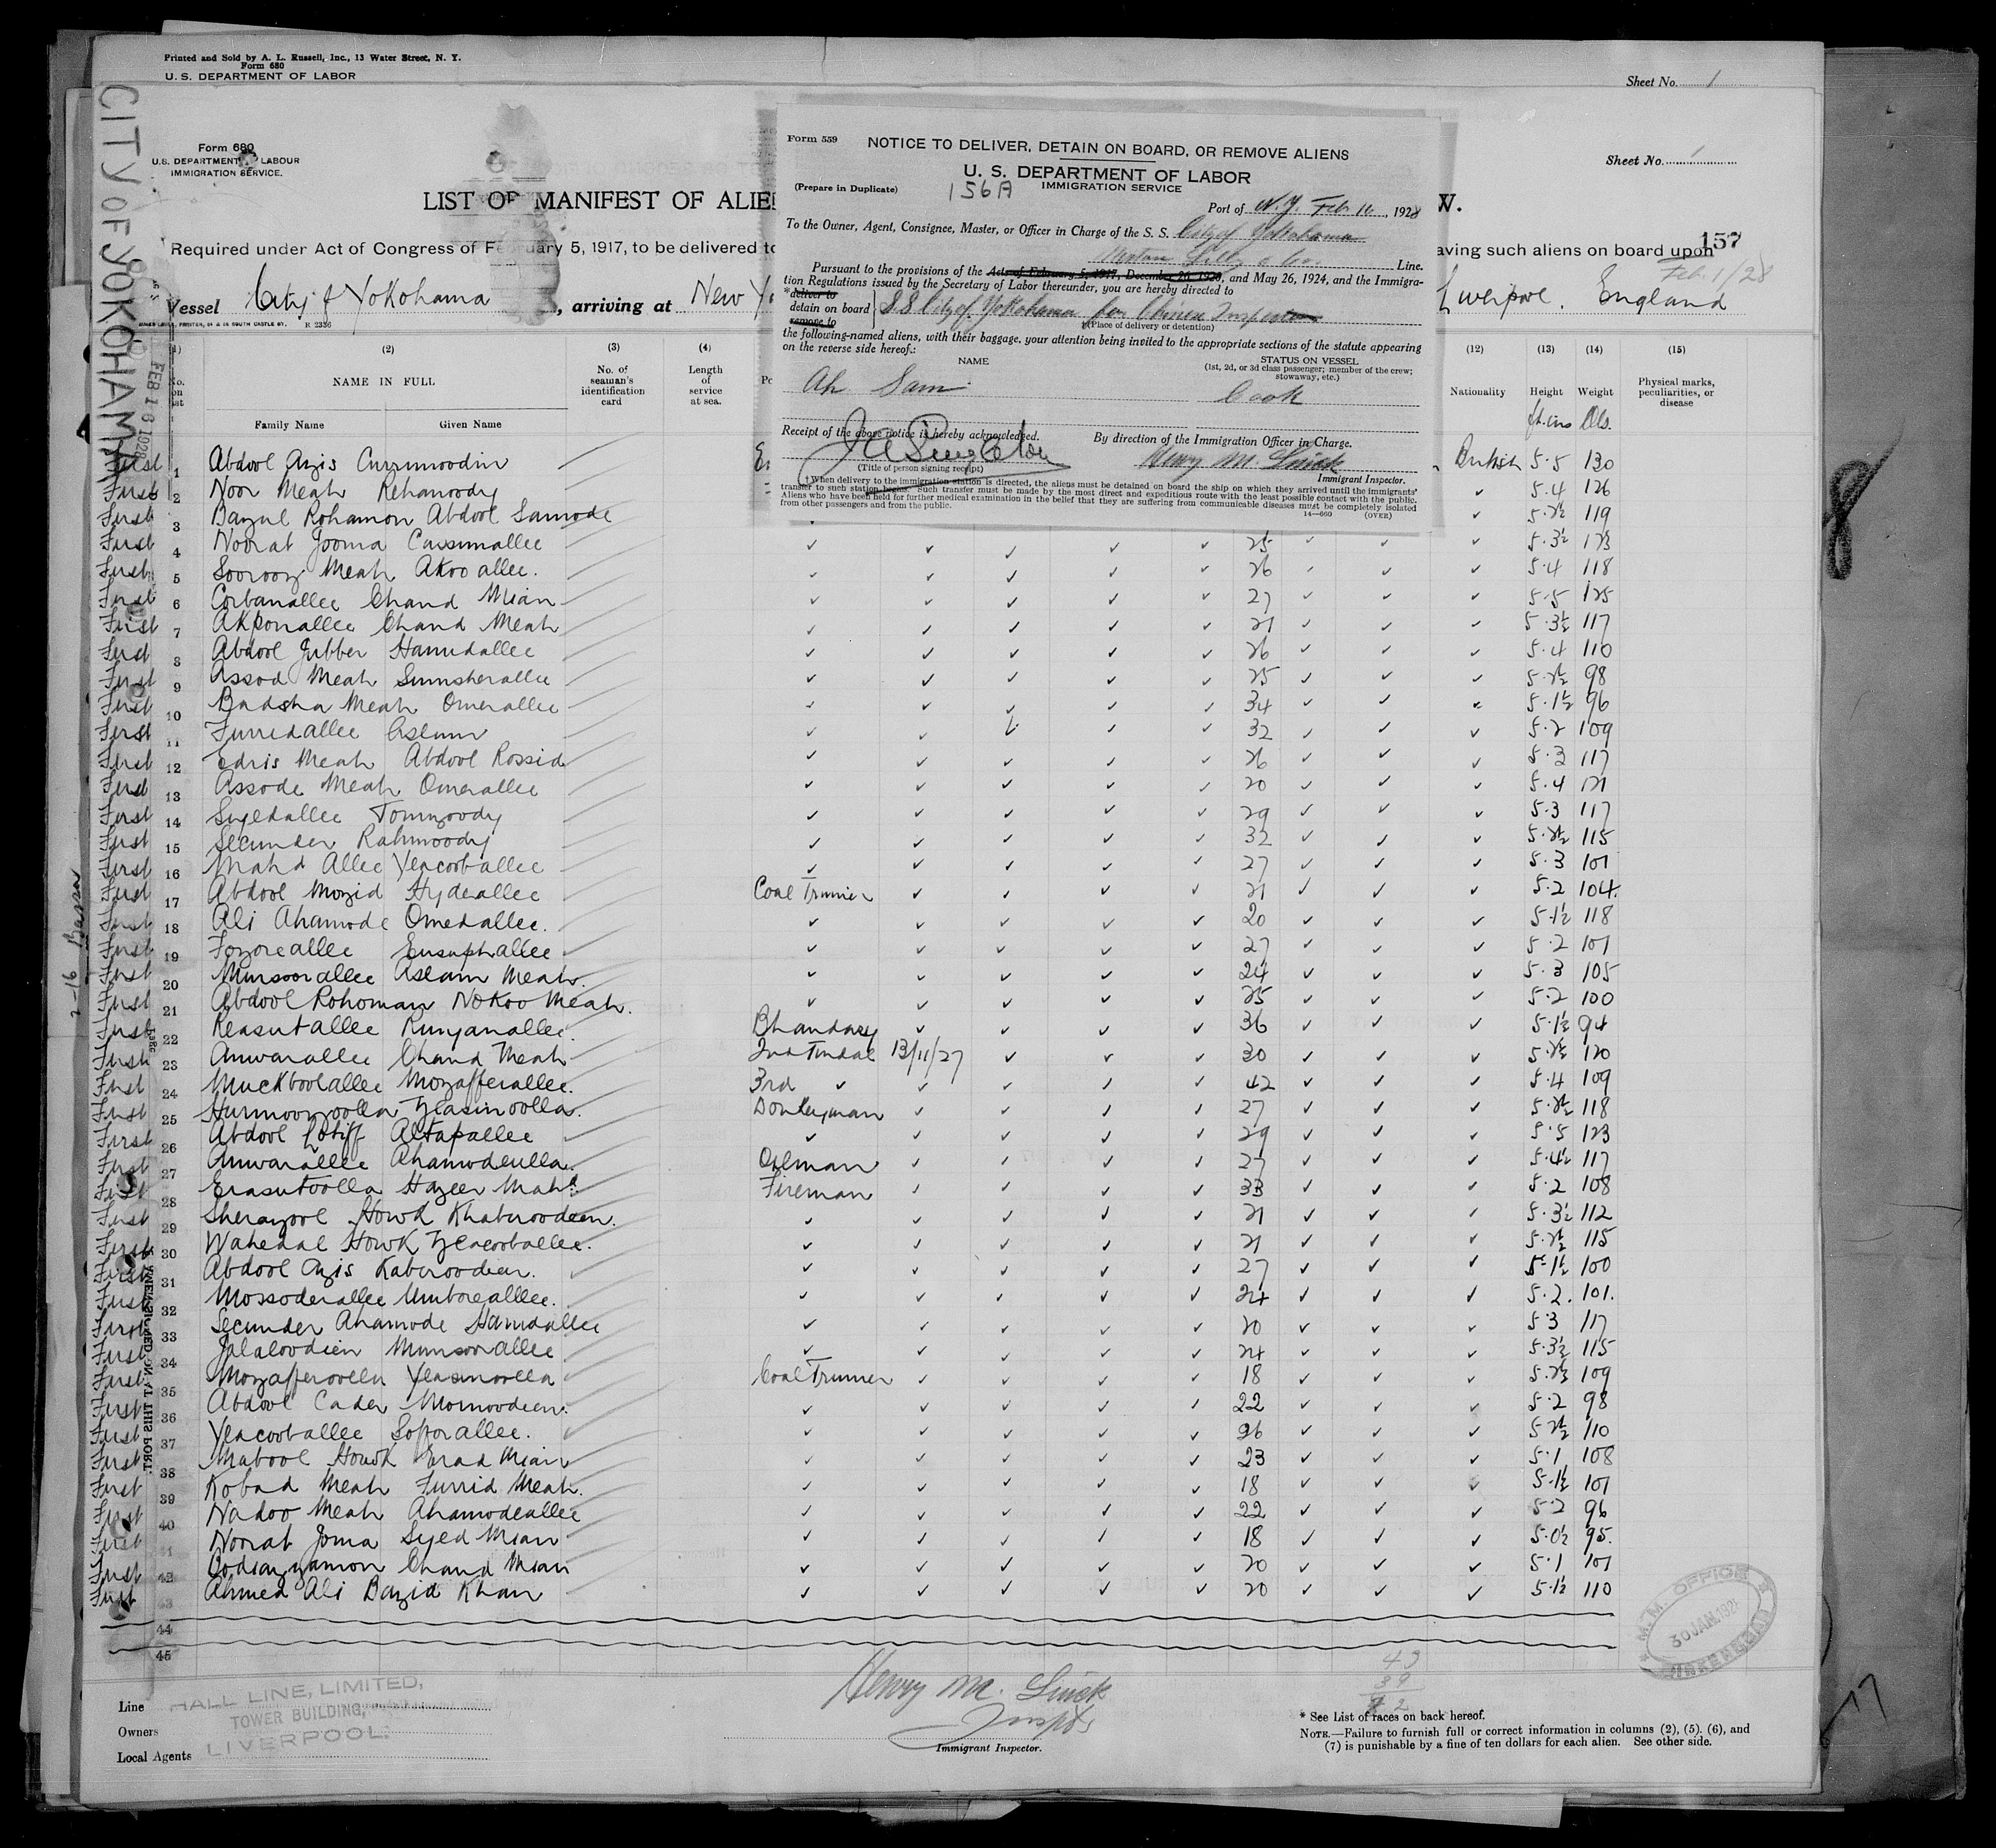 Printed and Sold by A. L. Russell, Inc., 13 Water Street, N. Y.
Form 680
U. S. DEPARTMENT OF LABOR
Sheet No. 1
CITY OF YOKOHAMA
Form 680
U.S. DEPARTMENT LABOUR
IMMIGRATION SERVICE.
Sheet No. 1
LIST OF MANIFEST OF ALIE
W.
Required under Act of Congress of February 5, 1917, to be delivered to
aving such aliens on board upon
157
Feb. 1/28
Vessel City of Yokohama, arriving at New Yo
Liverpool. England
R 2336
Form 559
NOTICE TO DELIVER, DETAIN ON BOARD, OR REMOVE ALIENS
U. S. DEPARTMENT OF LABOR
IMMIGRATION SERVICE
(Prepare in Duplicate)
156A
Port of N.Y. Feb. 16, 1928
To the Owner, Agent, Consignee, Master, or Officer in Charge of the S. S. City of Yokohama
Norton Lilly & Co. Line.
Pursuant to the provisions of the Acts of February 5, 1917, December 26, 1920, and May 26, 1924, and the Immigra-
tion Regulations issued by the Secretary of Labor thereunder, you are hereby directed to
*deliver to
detain on board
remove to
S S City of Yokohama for Chinese Inspector
†(Place of delivery or detention)
the following-named aliens, with their baggage, your attention being invited to the appropriate sections of the statute appearing
on the reverse side hereof.:
NAME
STATUS ON VESSEL
(1st, 2d, or 3d class passenger; member of the crew;
stowaway, etc.)
Ah Sam
Cook
Receipt of the above notice is hereby acknowledged.
By direction of the Immigration Officer in Charge.
J A Singleton
Henry M. Linick
(Title of person signing receipt)
Immigrant Inspector.
†When delivery to the immigration station is directed, the aliens must be detained on board the ship on which they arrived until the immigrants'
transfer to such station begins. Such transfer must be made by the most direct and expeditious route with the least possible contact with the public.
Aliens who have been held for further medical examination in the belief that they are suffering from communicable diseases must be completely isolated
from other passengers and from the public.
14—660
(OVER)
(1) (2) (3) (4) (12) (13) (14) (15)
No. on list
NAME IN FULL
Family Name Given Name
No. of seaman's identification card
Length of service at sea.
Nationality
Height
ft. ins
Weight
lbs.
Physical marks, peculiarities, or disease
FEB 16 1928
First 1 Abdool Azis Currimoodin British 5·5 130
First 2 Noor Meah Rehamoody 5·4 126
First 3 Bazul Rohamon Abdool Samode 5·2½ 119
First 4 Noorat Jooma Cassimallee 25 5·3½ 123
First 5 Soorooz Meah Akoo allee. 26 5·4 118
First 6 Corbanallee Chand Mian 27 5·5 125
First 7 Akponallee Chand Meah 21 5·3½ 117
First 8 Abdool Jubber Hamidallee 26 5·4 110
First 9 Assod Meah Sumsherallee 25 5·2½ 98
First 10 Badsha Meah Omerallee 34 5·1½ 96
First 11 Furridallee Aslam 32 5·2 109
First 12 Edris Meah Abdool Rossid 26 5·3 117
First 13 Assode Meah Omerallee 20 5·4 121
First 14 Syedallee Tomizoody 29 5·3 117
First 15 Secunder Rahmoody 32 5·2½ 115
First 16 Mahd Allee Yeacooballee 27 5·3 101
First 17 Abdool Mozid Hyderallee Coal Trimmer 21 5·2 104.
First 18 Ali Ahamode Omedallee. 20 5·1½ 118
First 19 Fozoreallee Eusuphallee 27 5·2 101
First 20 Munsoorallee Aslam Meah. 24 5·3 105
First 21 Abdool Rohoman Nokoo Meah. 25 5·2 100
First 22 Reasutallee Runjanallee. Bhandary 36 5·1½ 94
First 23 Anwarallee Chand Meah 2nd Tindal 13/11/27 30 5·2½ 120
First 24 Muckboolallee Mozafferallee. 3rd 42 5·4 109
First 25 Hurmoozoolla Yeasinoolla. Donkeyman 27 5·2½ 118
First 26 Abdool Lotiff Altapallee 29 5·5 123
First 27 Anwarallee Ahamodeulla. Oilman 27 5·4½ 117
First 28 Erasutoolla Hazeer Mahd. Fireman 33 5·2 108
First 29 Sherazool Howk Khaberoodeen. 21 5·3½ 112
First 30 Wahedal Howk Yeacooballee. 21 5·2½ 115
First 31 Abdool Azis Kaberoodeen. 27 5·1½ 100
First 32 Mossoderallee Umboreallee. 24 5·2. 101.
First 33 Secunder Ahamode Hamdallee 20 5·3 117
First 34 Jalaloodien Munsoorallee 24 5·3½ 115
First 35 Mozafferoolla Yeasinoolla Coal Trimmer 18 109
First 36 Abdool Cader Momoodeen. 22 5·2 98
First 37 Yeacooballee Sofforallee. 26 5·2½ 110
First 38 Mabool Howk Erad Mian 23 5·1 108
First 39 Kobad Meah Furrid Meah. 18 5·1½ 101
First 40 Nadoo Meah Ahamodeallee 22 5·2 96
First 41 Noorat Joma Syed Mian 18 5·0½ 95.
First 42 Chand Mian 20 5·1 101
First 43 Ahmed Ali Bazid Khan 20 5·1½ 110
44
45
2-16 Bassra
Line
Owners
Local Agents
HALL LINE, LIMITED,
TOWER BUILDING,
LIVERPOOL.
Henry M. Linick
Inspt.
Immigrant Inspector.
43
39
82
* See List of races on back hereof.
NOTE.—Failure to furnish full or correct information in columns (2), (5). (6), and
(7) is punishable by a fine of ten dollars for each alien. See other side.
M. M. OFFICE
30 JAN. 192
BIRKENHEAD